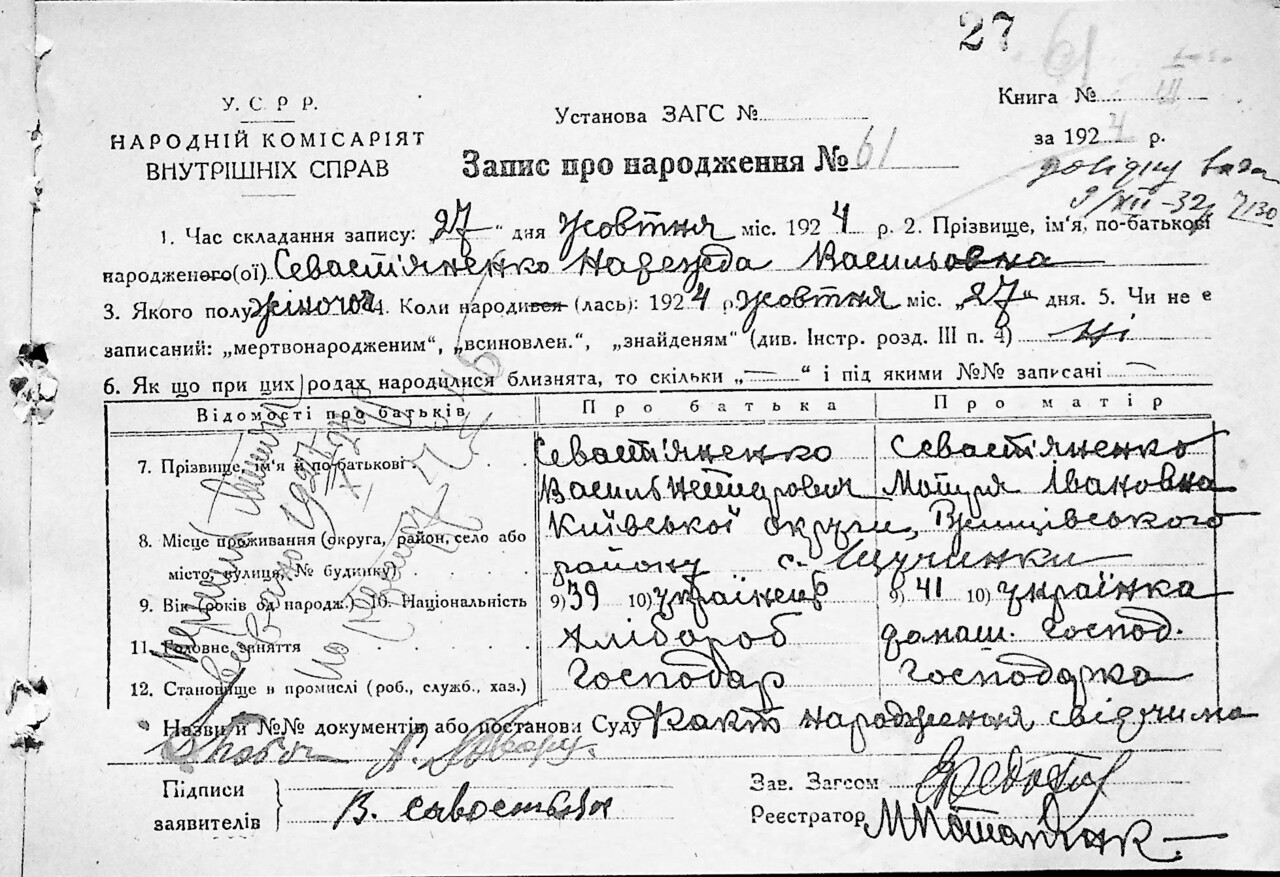 27 61
III
У. С Р Р.
НАРОДНІЙ КОМІСАРІЯТ
ВНУТРІШНІХ СПРАВ
Установа ЗАГС №
Книга №
за 1924 р.
Запис про народження № 61
9/XII-32 7130
1. Час складання запису: „27“ дня Жовтня міс. 1924 р. 2. Прізвище, ім'я, по-батькові
народженого(ої) Севаст'яненко Надежда Васильовна
3. Якого полу жіночого 4. Коли народився (лась): 1924 р. Жовтня міс. „27“ дня. 5. Чи не є
записаний: „мертвонародженим“, „всиновлен.“, „знайденям“ (див. Інстр. розд. III п. 4) ні
6. Як що при цих родах народилися близнята, то скільки „—“ і під якими №№ записані —
Відомості про батьків Про батька Про матір
7. Прізвище, ім'я й по-батькові Севаст'яненко Севаст'яненко
Василь Мотря Івановна
8. Місце проживання (округа, район, село або Київської округи,
місто, вулиця, № будинку) району с. Щучинки
9. Вік (років од народж.) 10. Національність 9) 39 10) українець 9) 41 10) українка
11. Головне заняття Хлібороб домаш. господ.
12. Становище в промислі (роб., служб., хаз.) Господар Господарка
Назви й №№ документів або постанови Суду Факт народження свідчимо
Підписи
заявителів
В.
Зав. Загсом
Реєстратор